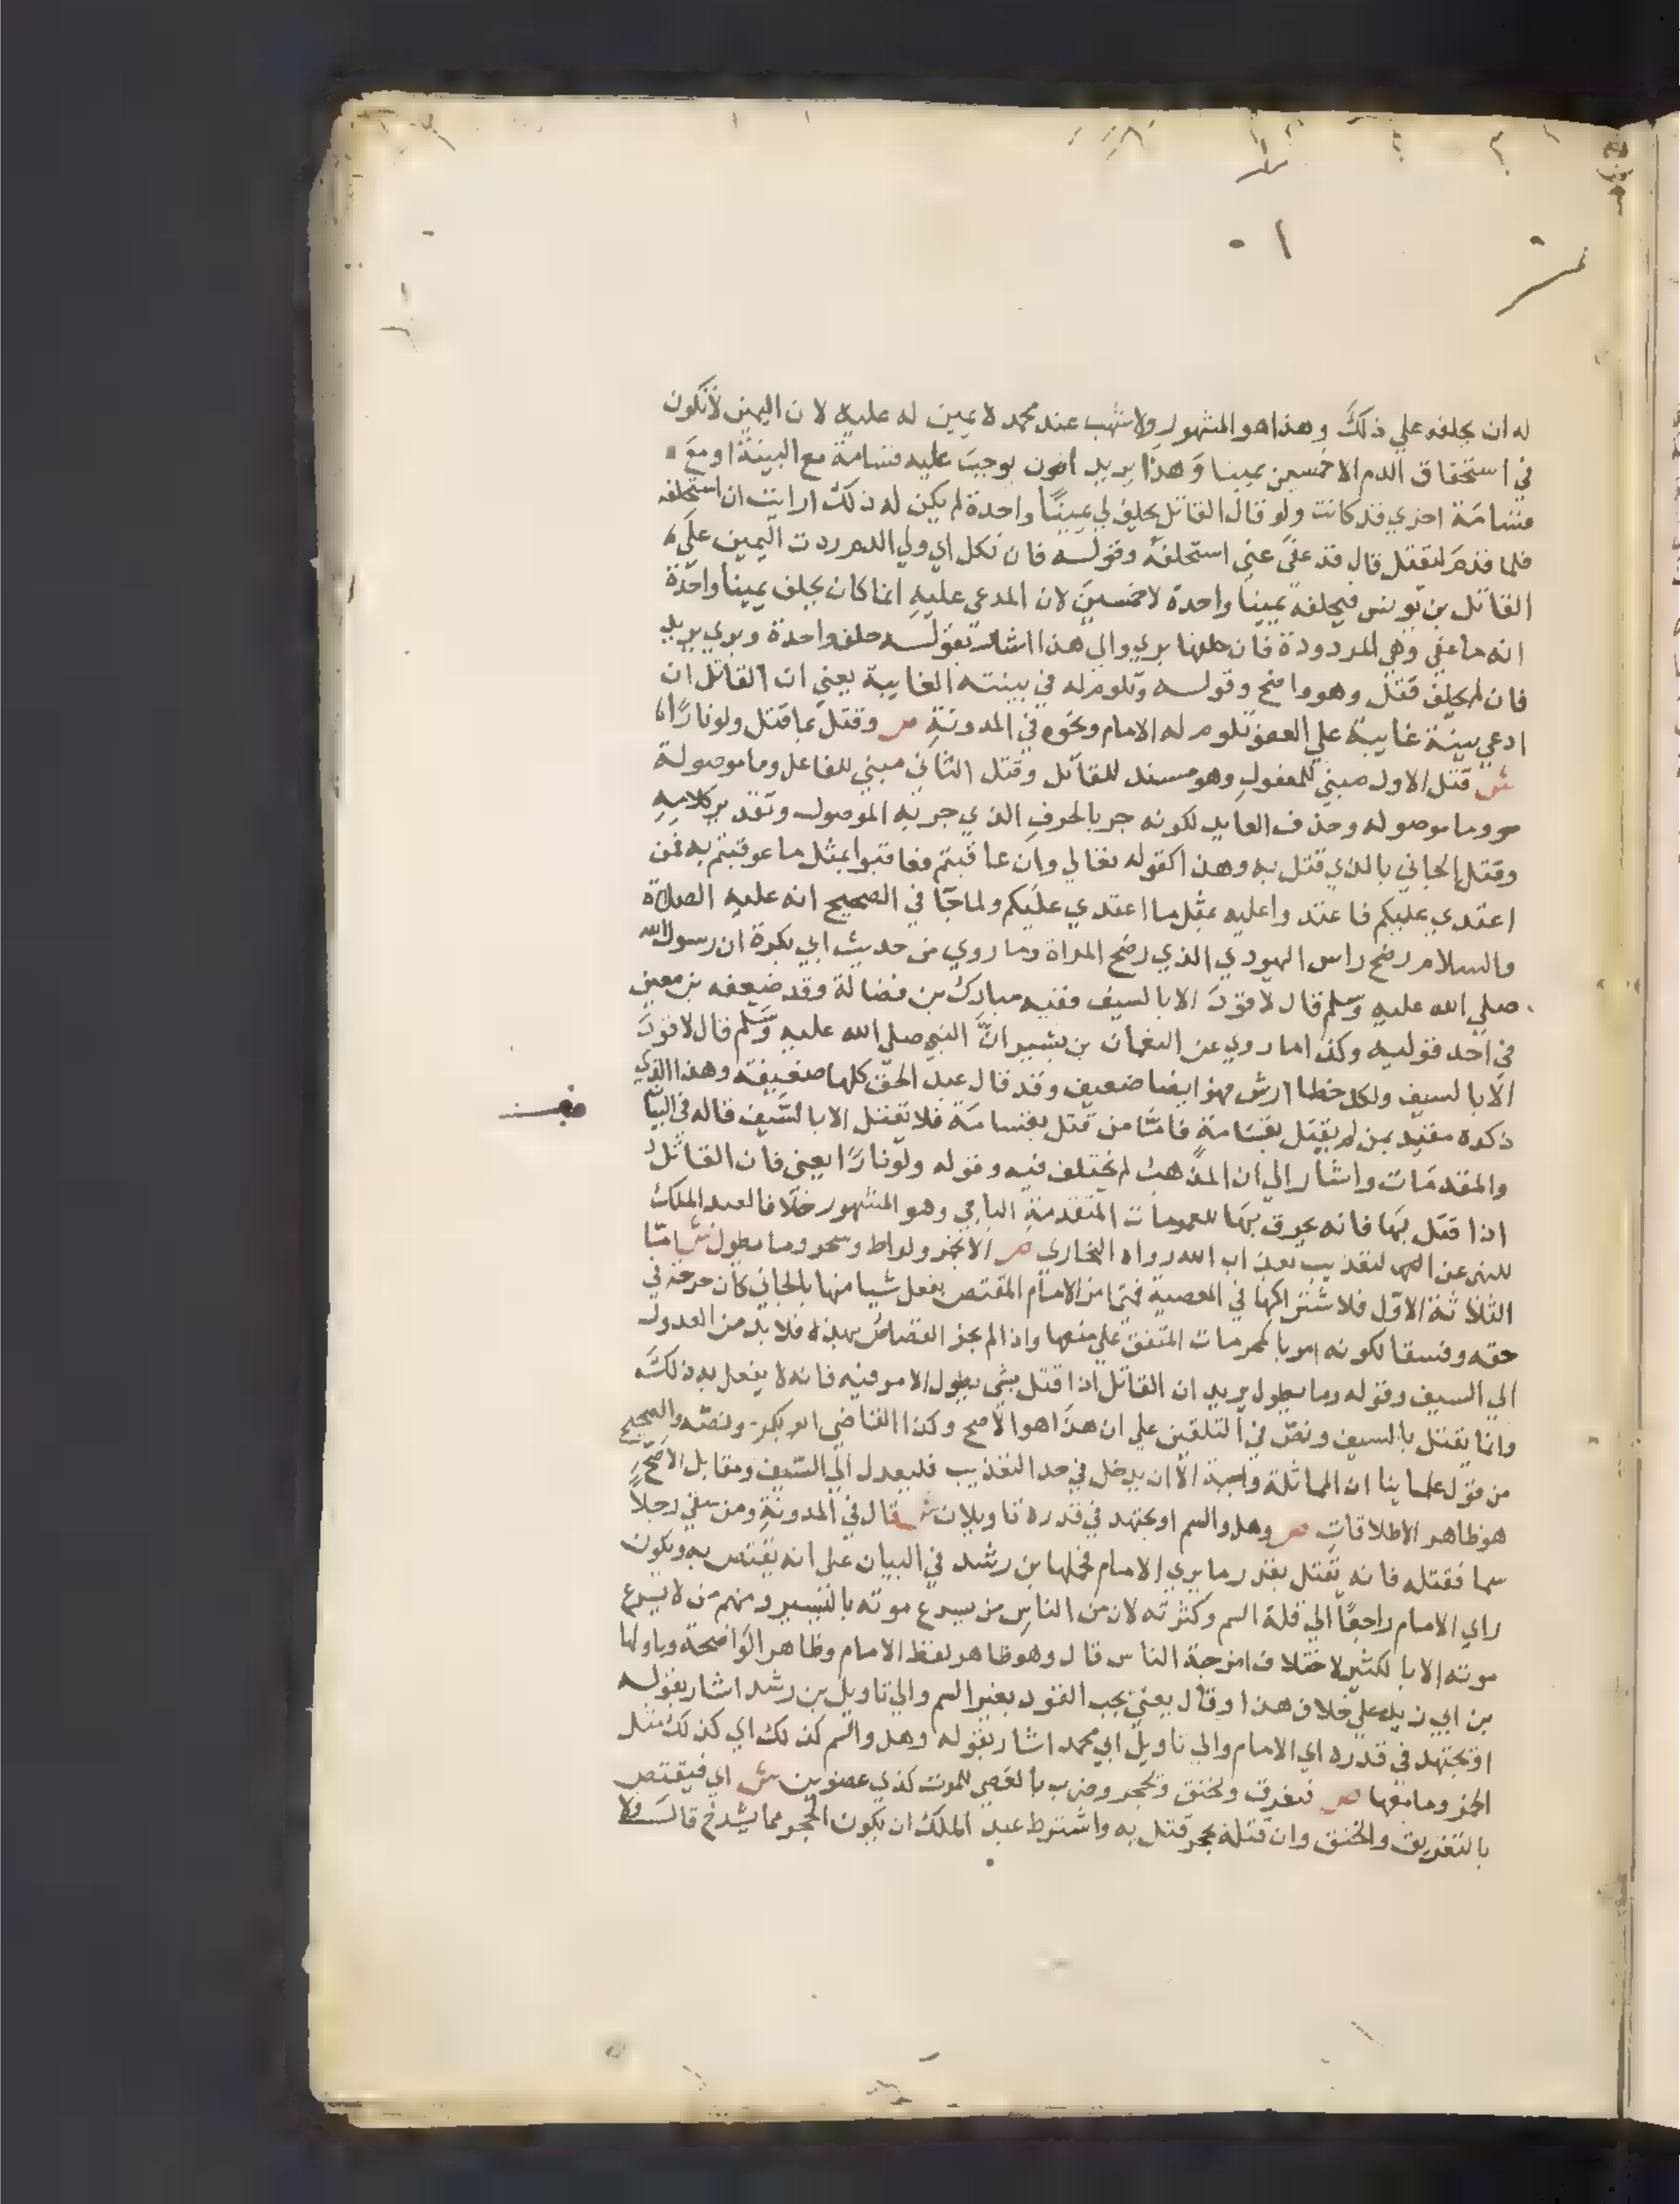 له ان يحلفه علي ذلك وهذا هو المشهور ولاشهب عند محمد لا يمين له عليه لان اليمين لا تكون
في استحقاق الدم الا خمسين يمينا وهذا يريد اخرون يوجب عليه قسامة مع البينة او مع
قسامة اخري قد كانت ولو قال القاتل يحلف لي يمينا واحدة لم يكن له ذلك ارايت ان استحلفه
فلما قدم ليقتل قال قد عفي عني استحلفه وقوله فان نكل اي ولي الدم ردت اليمين علي
القاتل بن يونس فيحلفه يمينا واحدة لا خمسين لان المدعي عليه انما كان يحلف يمينا واحدة
انه ما عفي وهي المردودة فان حلفها بري والي هذا اشار بقوله حلف واحدة وبري يريد
فان لم يحلف قتل وهو واضح وقوله وتلوم له في بينته الغايبة يعني ان القاتل ان
ادعي بينة غايبة علي العفو تلوم له الامام ونحوه في المدونة ص وقتل بما قتل ولو نارا
ش قتل الاول مبني للمفعول وهو مسند للقاتل وقتل الثاني مبني للفاعل وما موصولة
وما موصوله وحذف العايد لكونه جر بالحرف الذي جر به الموصول وتقدير كلامه
وقتل الجاني بالذي قتل به وهذا كقوله تعالي وان عاقبتم فعاقبوا بمثل ما عوقبتم به فمن
اعتدي عليكم فاعتدوا عليه بمثل ما اعتدي عليكم ولما جا في الصحيح انه عليه الصلاة
والسلام رضخ راس اليهودي الذي رضخ المراة وما روي من حديث ابي بكرة ان رسول الله
صلي الله عليه وسلم قال لا قود الا بالسيف ففيه مبارك بن فضالة وقد ضعفه بن معين
في احد قوليه وكذا ما روي عن النعمان بن بشير ان النبي صلي الله عليه وسلم قال لا قود
الا بالسيف ولكل خطا ارش فهو ايضا ضعيف وقد قال عبد الحق كلها ضعيفة وهذا الذي
ذكره مقيد بمن لم يقتل بقسامة فاما من قتل بقسامة فلا تقتل الا بالسيف قاله في البيان
والمقدمات واشار الي ان المذهب لم يختلف فيه وقوله ولو نارا يعني فان القاتل
اذا قتل بها فانه يحرق بها للعمومات المتقدمة الباجي وهو المشهور خلافا لعبد الملك
للنهي عن التعذيب بعذاب الله رواه البخاري ص الا بخمر ولواط وسحر وما يطول ش اما
الثلاثة الاول فلاشتراكها في المعصية فمتي امر الامام المقتص بفعل شيا منها بالجاني كان جرحة في
حقه وفسقا لكونه امر بالمحرمات المتفق علي منعها واذا لم يجز القصاص بهذه فلا بد من العدول
الي السيف وقوله وما يطول يريد ان القاتل اذا قتل بشي يطول الامر فيه فانه لا يفعل به ذلك
وانما يقتل بالسيف ونص في التلقين علي ان هذا هو الاصح وكذا القاضي ابو بكر ونصه والصحيح
من قول علماينا ان المماثلة واجبة الا ان يدخل في حد التعذيب فليعدل الي السيف ومقابل الاصح
هو ظاهر الاطلاقات ص وهل والسم او يجتهد في قدره تاويلان ش قال في المدونة ومن سقي رجلا
سما فقتله فانه يقتل بقدر ما يري الامام فحملها بن رشد في البيان علي انه يقتص به ويكون
راي الامام راجعا الي قلة السم وكثرته لان من الناس من يسرع موته باليسير ومنهم من لا يسرع
موته الا بالكثير لاختلاف امزجة الناس قال وهو ظاهر لفظ الامام وظاهر الواضحة وتاولها
بن ابي زيد علي خلاف هذا وقال يعني يجب القود بغير السم والي تاويل بن رشد اشار بقوله
او يجتهد في قدره اي الامام والي تاويل ابي محمد اشار بقوله وهل والسم كذلك اي كذلك مثل
الخمر وما معها ص فيغرق ويخنق ويحجر وضرب بالعصي للموت كذي عصوين ش اي فيقتص
بالتغريق والخنق وان قتله بحجر قتل به واشترط عبد الملك ان يكون الحجر مما يشدخ قال ولا